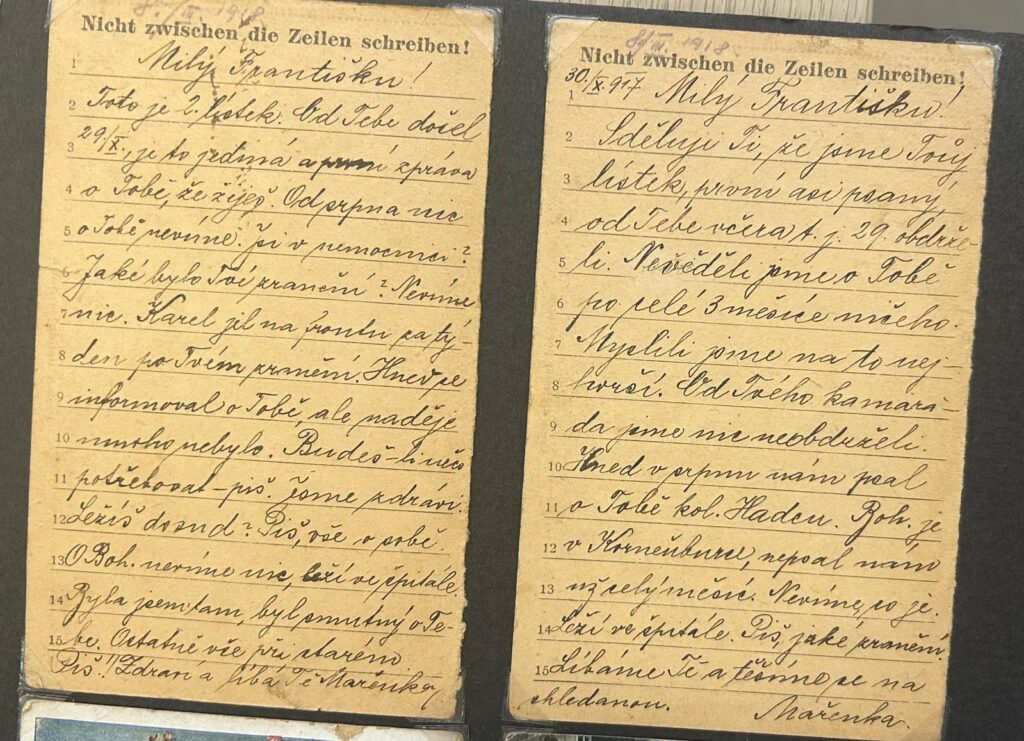 8./III. 1918.
Nicht zwischen die Zeilen schreiben!
1 Milý Františku!
2 Toto je 2. lístek. Od Tebe došel
3 29/X., je to jediná a první zpráva
4 o Tobě, že žiješ. Od srpna nic
5 o Tobě nevíme. Jsi v nemocnici?
6 Jaké bylo Tvé zranění? Nevíme
7 nic. Karel jel na frontu za tý-
8 den po Tvém zranění. Hned se
9 informoval o Tobě, ale naděje
10 mnoho nebylo. Budeš-li něco
11 potřebovat - piš. Jsme zdrávi.
12 Ležíš dosud? Piš, vše o sobě.
13 O Boh. nevíme nic, leží ve špitále.
14 Byla jsem tam, byl smutný o Te-
15 be. Ostatně vše při starém
Piš!! Zdraví a líbá Tě Mařenka
8/III. 1918.
Nicht zwischen die Zeilen schreiben!
30./X. 917
1 Milý Františku!
2 Sděluji Ti, že jsme Tvůj
3 lístek, první asi psaný,
4 od Tebe včera t. j. 29. obdrže-
5 li. Nevěděli jsme o Tobě
6 po celé 3 měsíce ničeho.
7 Myslili jsme na to nej-
8 horší. Od Tvého kamará-
9 da jsme nic neobdrželi.
10 Hned v srpnu nám psal
11 o Tobě kol. Hadcu. Boh. je
12 v Korneuburce, nepsal nám
13 už celý měsíc. Nevíme, co je.
14 Leží ve špitále. Piš, jaké zranění.
15 Líbáme Tě a těšíme se na
shledanou. Mařenka.